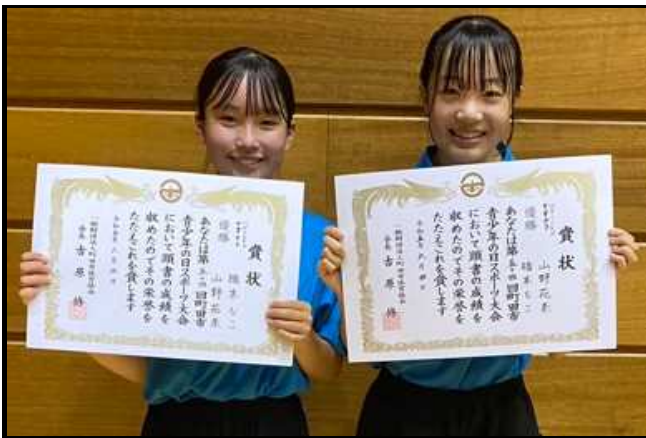 賞状
優勝
山野花来
あなたは第五十回町田市
青少年の日スポーツ大会
において頭書の成績を
収めたのでその栄誉を
たたえこれを賞します
一般財団法人町田市体育協会
会長 吉原修
賞状
優勝
山野花来
あなたは第五十回町田市
青少年の日スポーツ大会
において頭書の成績を
収めたのでその栄誉を
たたえこれを賞します
一般財団法人町田市体育協会
会長 吉原修